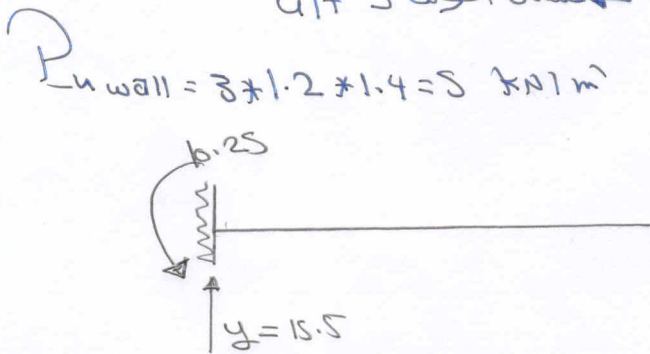 P_u wall = 3*1.2*1.4=5 kN/m'
16.25
y=15.5